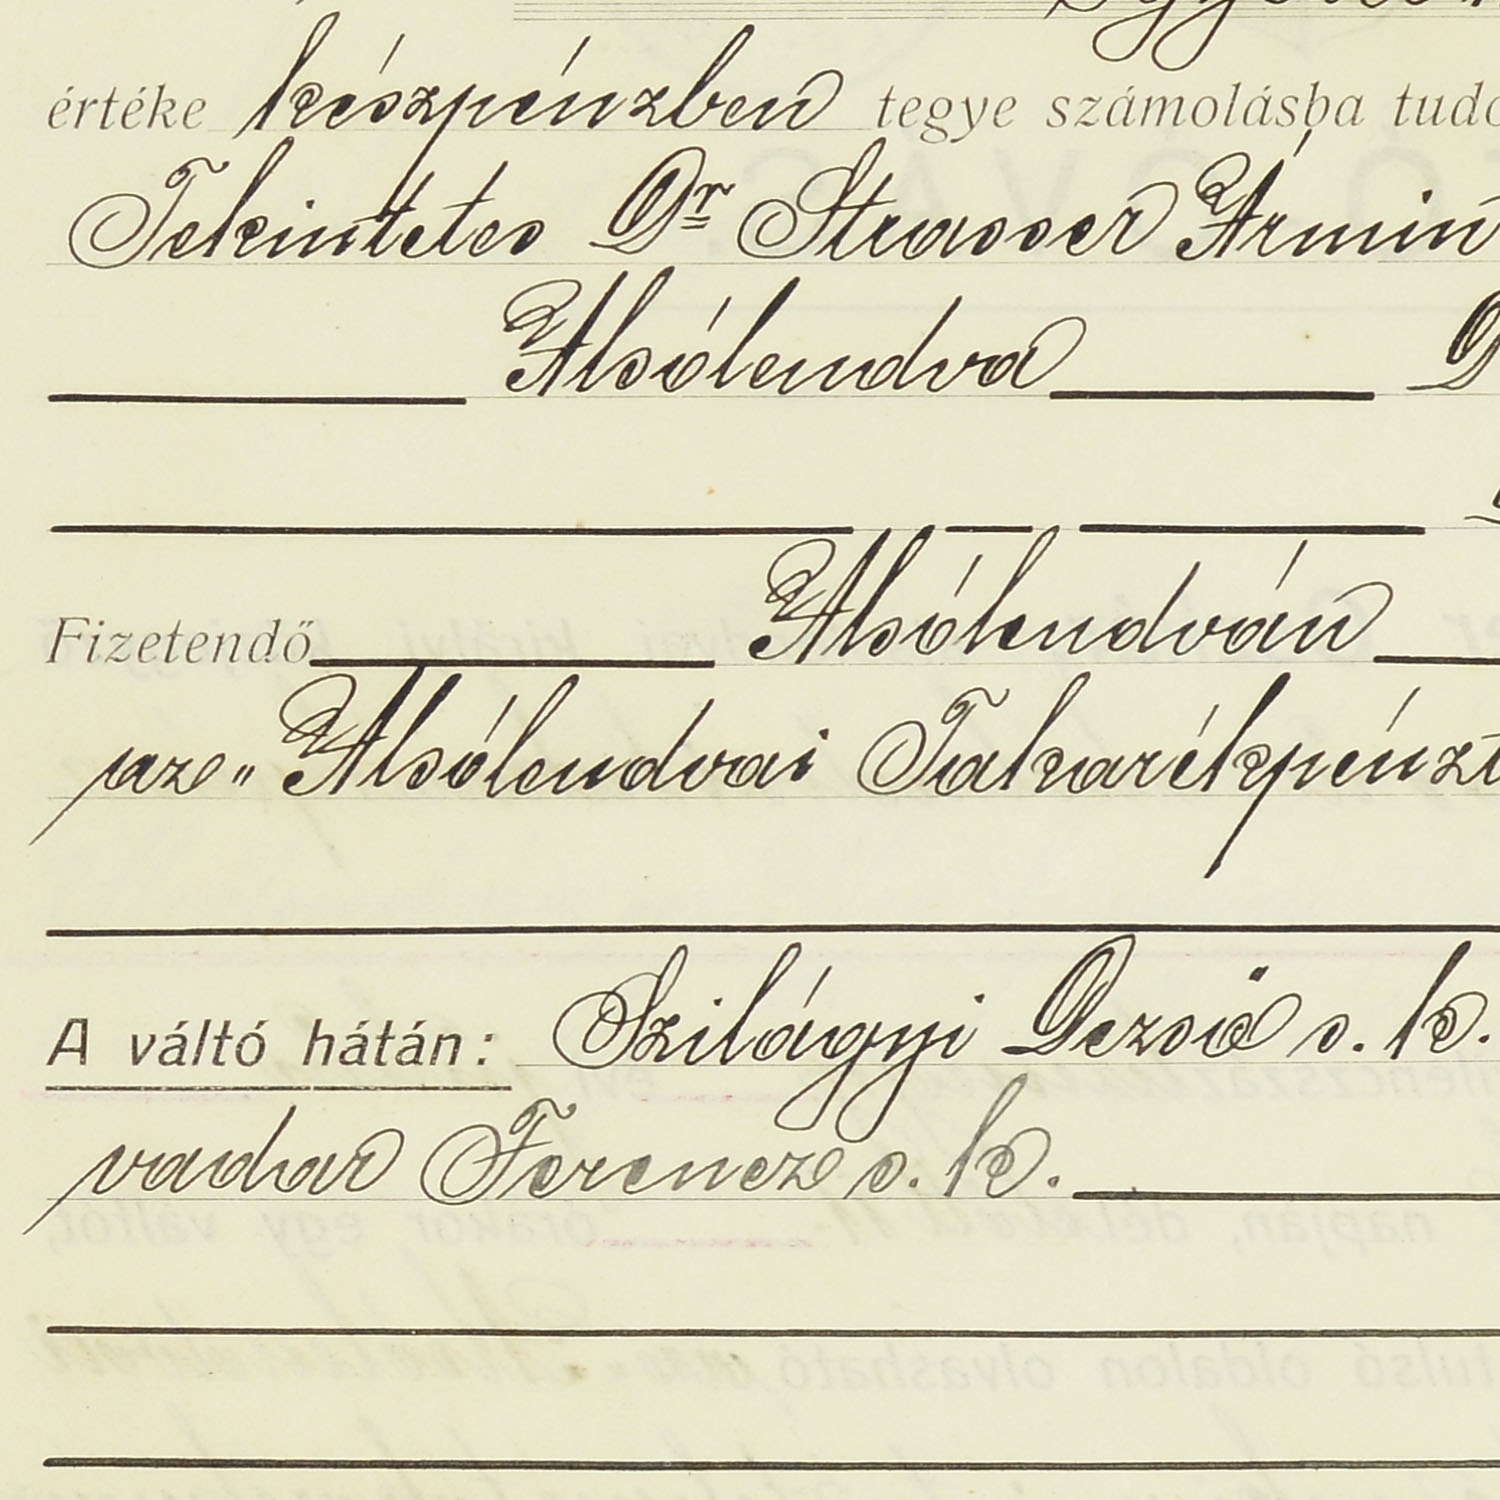 értéke készpénzben tegye számolásba tudo
Tekintetes Dr Strasser Ármin
Alsólendva
Fizetendő Alsólendván
az „Alsólendvai Takarékpénzt
A váltó hátán: Szilágyi Dezső s. k.
vadar Ferencz s. k.